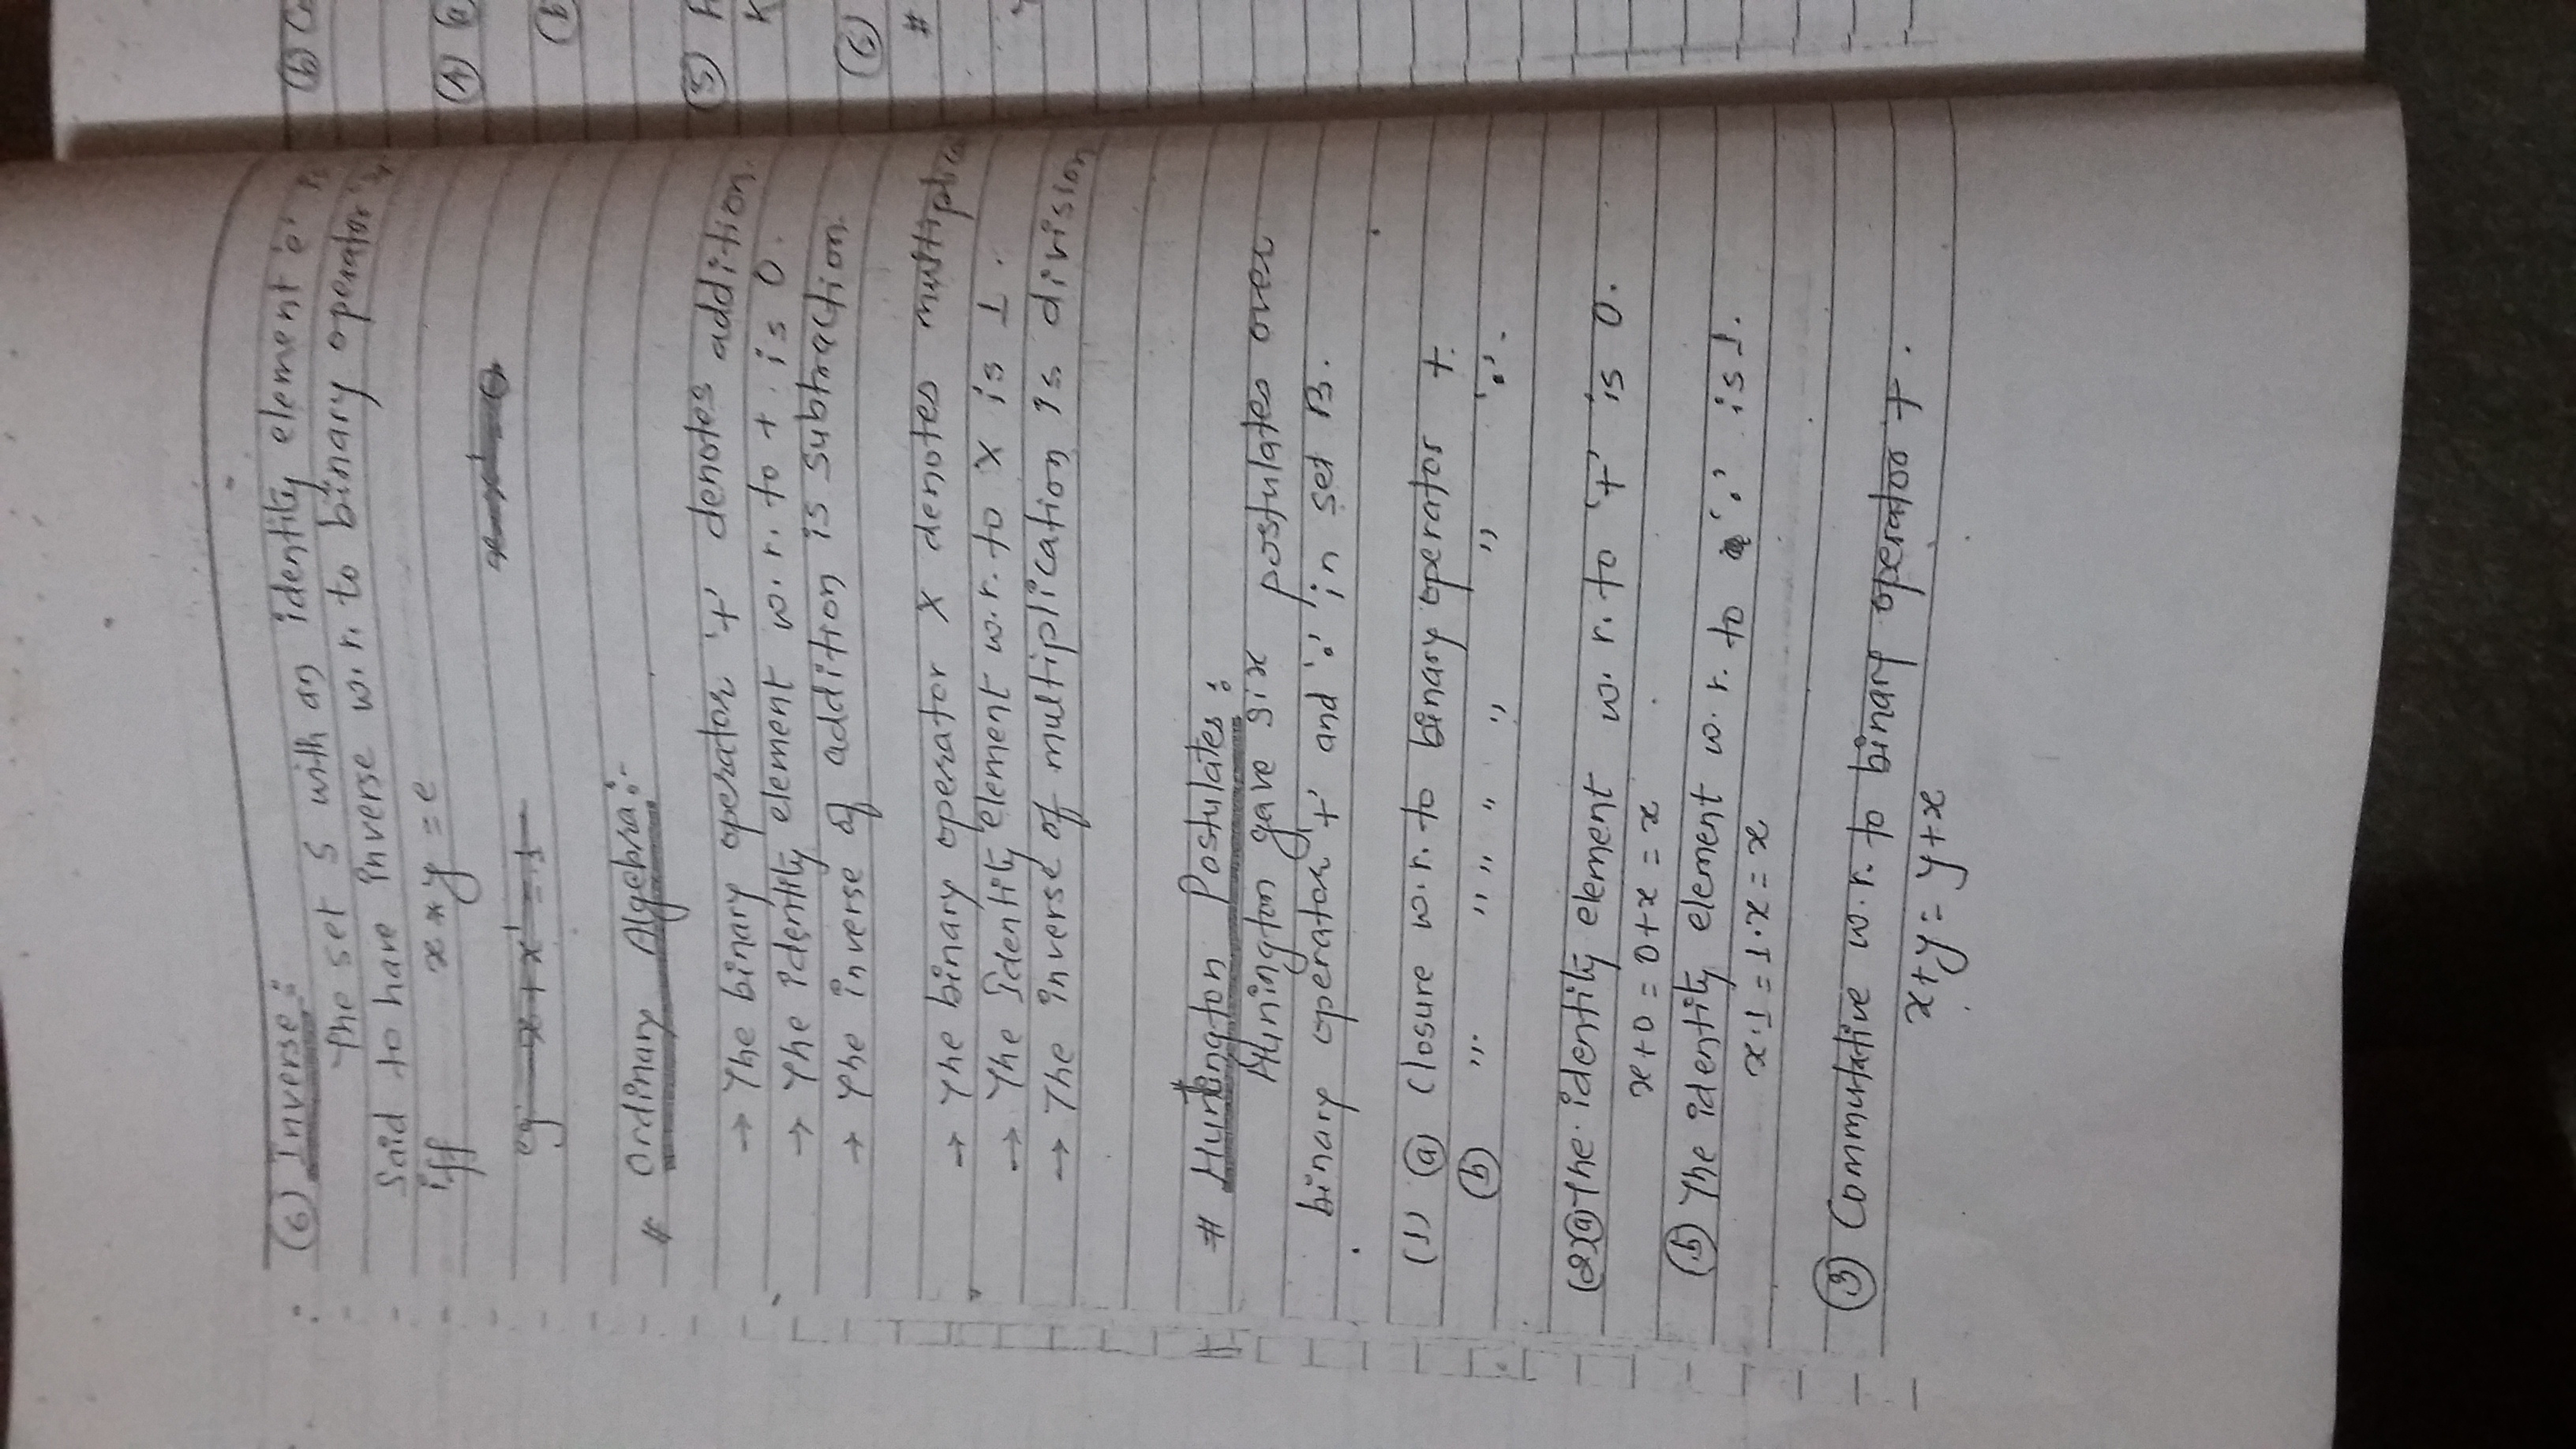 (6) Inverse :
The set S with an identity element 'e'
Said to have inverse w.r. to binary operator
iff x * y = e
eg. x + x' = 1
# Ordinary Algebra :-
→ The binary operator '+' denotes addition.
→ The identity element w.r. to + is 0.
→ The inverse of addition is subtraction.
→ The binary operator X denotes
→ The Identity element w.r. to X is 1.
→ The inverse of multiplication is division
# Huntington Postulates :
Hunington gave six postulates over
binary operator '+' and '.' in set B.
(1) (a) Closure w.r. to binary operator +.
(b) ,, ,, ,, ,, ,, ,, '.'.
(2) (a) The identity element w.r. to '+' is 0.
x+0 = 0+x = x
(b) The identity element w.r. to '.' is 1.
x.1 = 1.x = x
(3) Commutative w.r. to binary operator +.
x+y = y+x
(b)
(4) (a)
(b
(5)
(6)
#